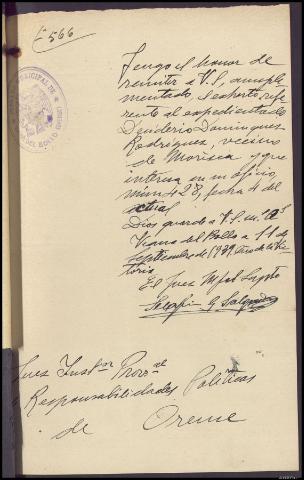 E 566
Tengo el honor de
remitir a V.S, cumpli-
mentado, el exhorto refe-
rente al expedientado
Desiderio Dominguez
Rodriguez, vecino
de Morisca y que
interesa en su oficio
núm 428, fecha 4 del
actual
Dios guarde a V.S. m. as
Viana del Bollo a 11 de
Septiembre de 1939. Año de la Vic-
toria
El Juez Mpal Supto
Serafin G
Juez Instor Proval
Responsabilidades Politicas
de Orense